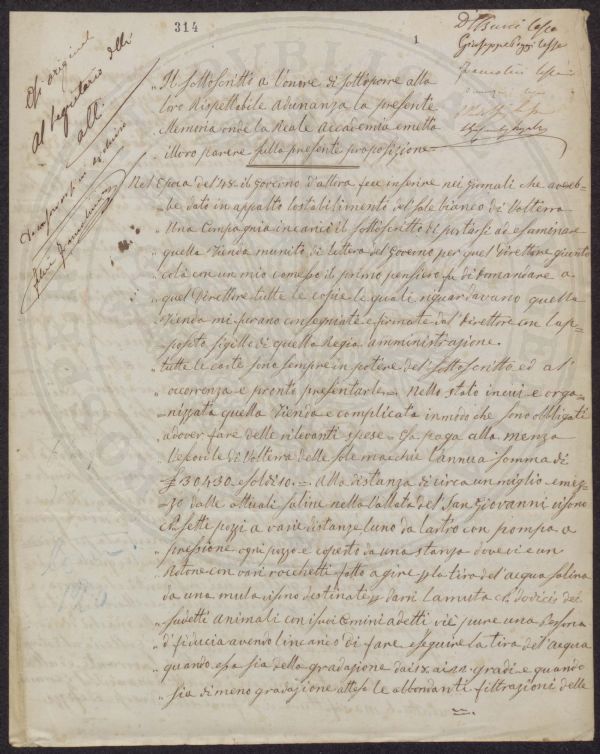 314
1
Di original
al Segretario degli
att.
Giuseppe Pozzi
Il Sottoscritto a l'onore di sottoporre alla
loro Rispettabile Adunanza la presente
Memoria onde la Reale Accademia emetta
il loro parere sulla presente proposizione
Nel Epoca del 48 il Governo d'allora fece inserire nei Giornali che avereb=
be dato in appalto lo stabilimento del Sale bianco di Volterra
Una Compagnia incaricò il sottoscritto di portarsi ad esaminare
quella Azienda munito di lettera del Governo per quel Direttore giunto
colà con un mio compo il primo pensiero fu di domandare a
quel Direttore tutte le copie le quali riguardavano quella
Azienda mi furano consegniate e firmate dal Direttore con l'ap=
posito sigillo di quella Regia amministrazione.
tutte le carte sono sempre in potere del Sottoscritto ed al'
occorenza e pronto presentarle = Nello stato in cui e orga=
nizzata quella Azienda e complicata in modo che sono obbligati
a dover fare delle rilevanti spese = Si paga alla Menza
Vescovile di Volterra delle sole macchie l'annua somma di
30430 e soldi 10. = Alla distanza di circa un miglio e mez=
zo dalle attuali saline nella Vallata del San Giovanni vi sono
sette pozzi a varie distanze l'uno da l'artro con pompa a
pressione ogni pozzo e coperto da una stanza dove vi e un
Rotone con vari rocchetti fatto agire p la tira del'acqua salina
da una mula vi sono destinate p darsi la muta dodicis dei
sudetti animali con i suoi omini adetti vi e pure una Persona
di fiducia avendo l'incarico di fare esseguire la tira del'acqua
quando essa sia della gradasione dai 18. ai 22 gradi e quando
sia di meno gradazione attese le abbondanti filtrazioni delle